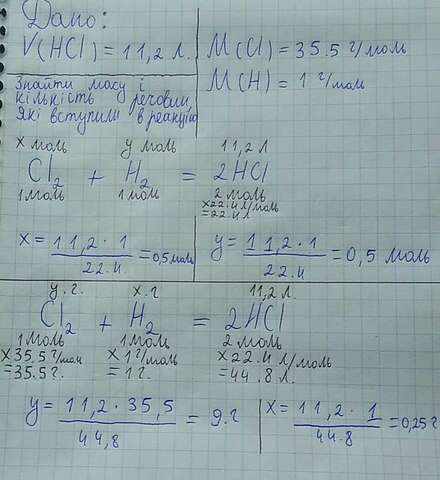 Дано:
V(HCl) = 11,2 л.
M(Cl) = 35.5 г/моль
M(H) = 1 г/моль
Знайти масу і
кількість речовин,
які вступили в реакцію
x моль y моль 11,2 л
Cl₂ + H₂ = 2HCl
1 моль 1 моль 2 моль
x22.4 л/моль
=22.4 л
x = 11,2 · 1 / 22.4 = 0,5 моль
y = 11,2 · 1 / 22.4 = 0,5 моль
y.г. x.г 11,2 л.
Cl₂ + H₂ = 2HCl
1 моль 1 моль 2 моль
x35.5 г/мол x 1 г/моль x 22.4 л/моль
=35.5 г. =1 г. =44.8 л.
y = 11,2 · 35,5 / 44,8 = 9.г
x = 11,2 · 1 / 44.8 = 0,25 г